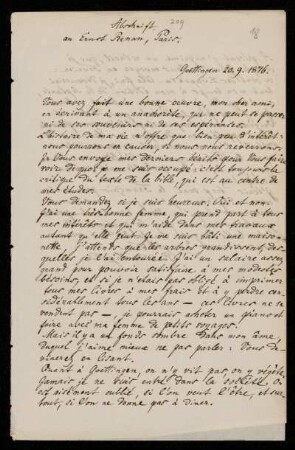 Abschrift
209
an Ernst Renan, Paris.
Goettingen 20.9.1876.
Vous avez fait une bonne oeuvre, mon cher ami,
en écrivant à un anachorète, qui ne peut se
de ses souvenirs ni de ses espérances.
L'histoire de ma vie n'offre que bien peu d'intérêt:
nous pouvons en causer, si nous nous revenions.
Je vous envoye mes derniers écrits pour vous faire
voir de quoi je me suis occupé: c'est toujours la
critique du texte de la bible, qui est au centre de
mes études.
Vous demandez si je suis heureux. Oui et non.
J'ai une très bonne femme, qui prend part à tous
mes intérêts et qui m'aide dans mes travaux
autant qu'elle peut. Je me suis bâti une maison-
nette, j'attends que les arbres grandissent, des-
quelles je l'ai entourée. J'ai un salaire assez
grand pour pouvoir satisfaire à mes modestes
besoins, et si je n'étais pas obligé à imprimer
tous mes livres à mes frais et à y perdre con-
sidérablement tous les ans — ces livres ne se
vendent pas —, je pourrais acheter un piano et
faire avec ma femme de petits voyages.
Mais il y a un fonds sombre dans mon âme,
duquel j'aime mieux ne pas parler. Vous de-
vinerez en lisant.
Quant à Goettingen, on n'y vit pas, on y végète.
Jamais je ne suis entré dans la société. On
est aisément oublié, si l'on veut l'être, et sur-
tout, si l'on ne donne pas à diner.